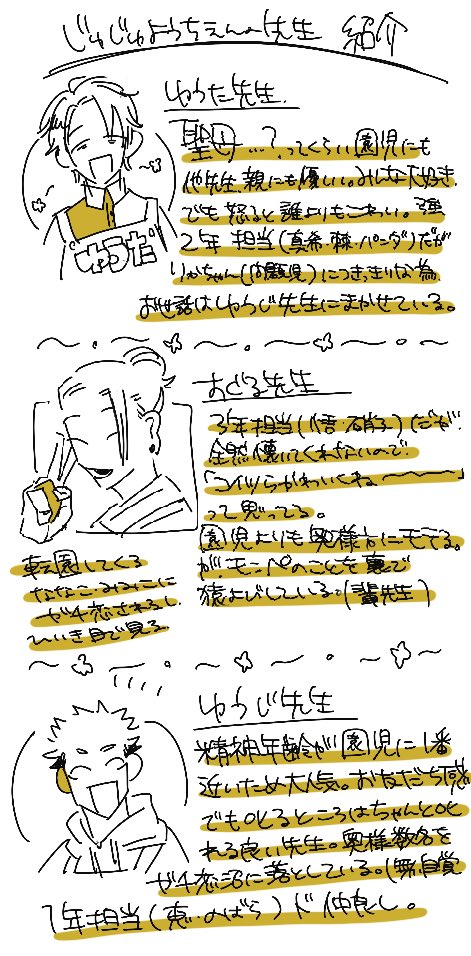 じゅじゅようちえんの先生 紹介
ゆうた先生
聖母…?ってくらい園児にも
他先生、親にも優しい。みんな大好き
でも怒ると誰よりもこわい。強
2年担当(真希・棘・パンダ)だが
りかちゃん(問題児)につきっきりな為、
お世話はゆうじ先生にまかせている。
ゆうた
すぐる先生
3年担当(悟・硝子)だが
全然懐いてくれないので
「コイツらかわいくね〜
って思ってる。
園児よりも奥様方にモテる。
が、モンペのことを裏で
猿よびしている。(糞先生)
転園してくる
ななこ・みみこに
ガチ恋されるし
ひいき目で見る
ゆうじ先生
精神年齢が園児に1番
近いため大人気。お友だち感
でも叱るところはちゃんと叱
れる良い先生。奥様数名を
ガチ恋沼に落としている。(無自覚
1年担当(恵・のばら)ド仲良し。